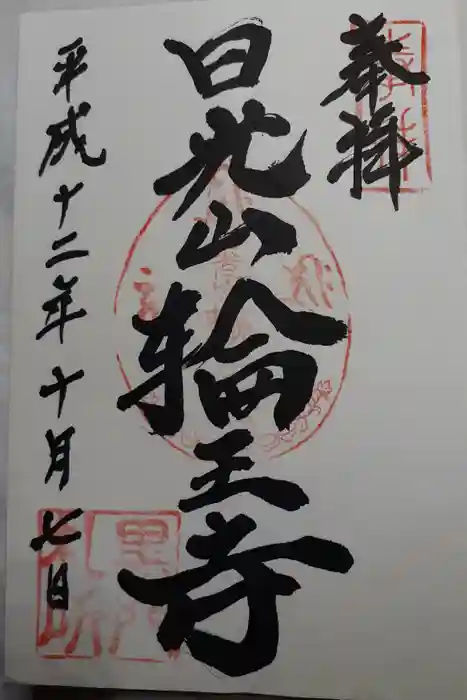 奉拝
日光山輪王寺
平成十二年十月七日